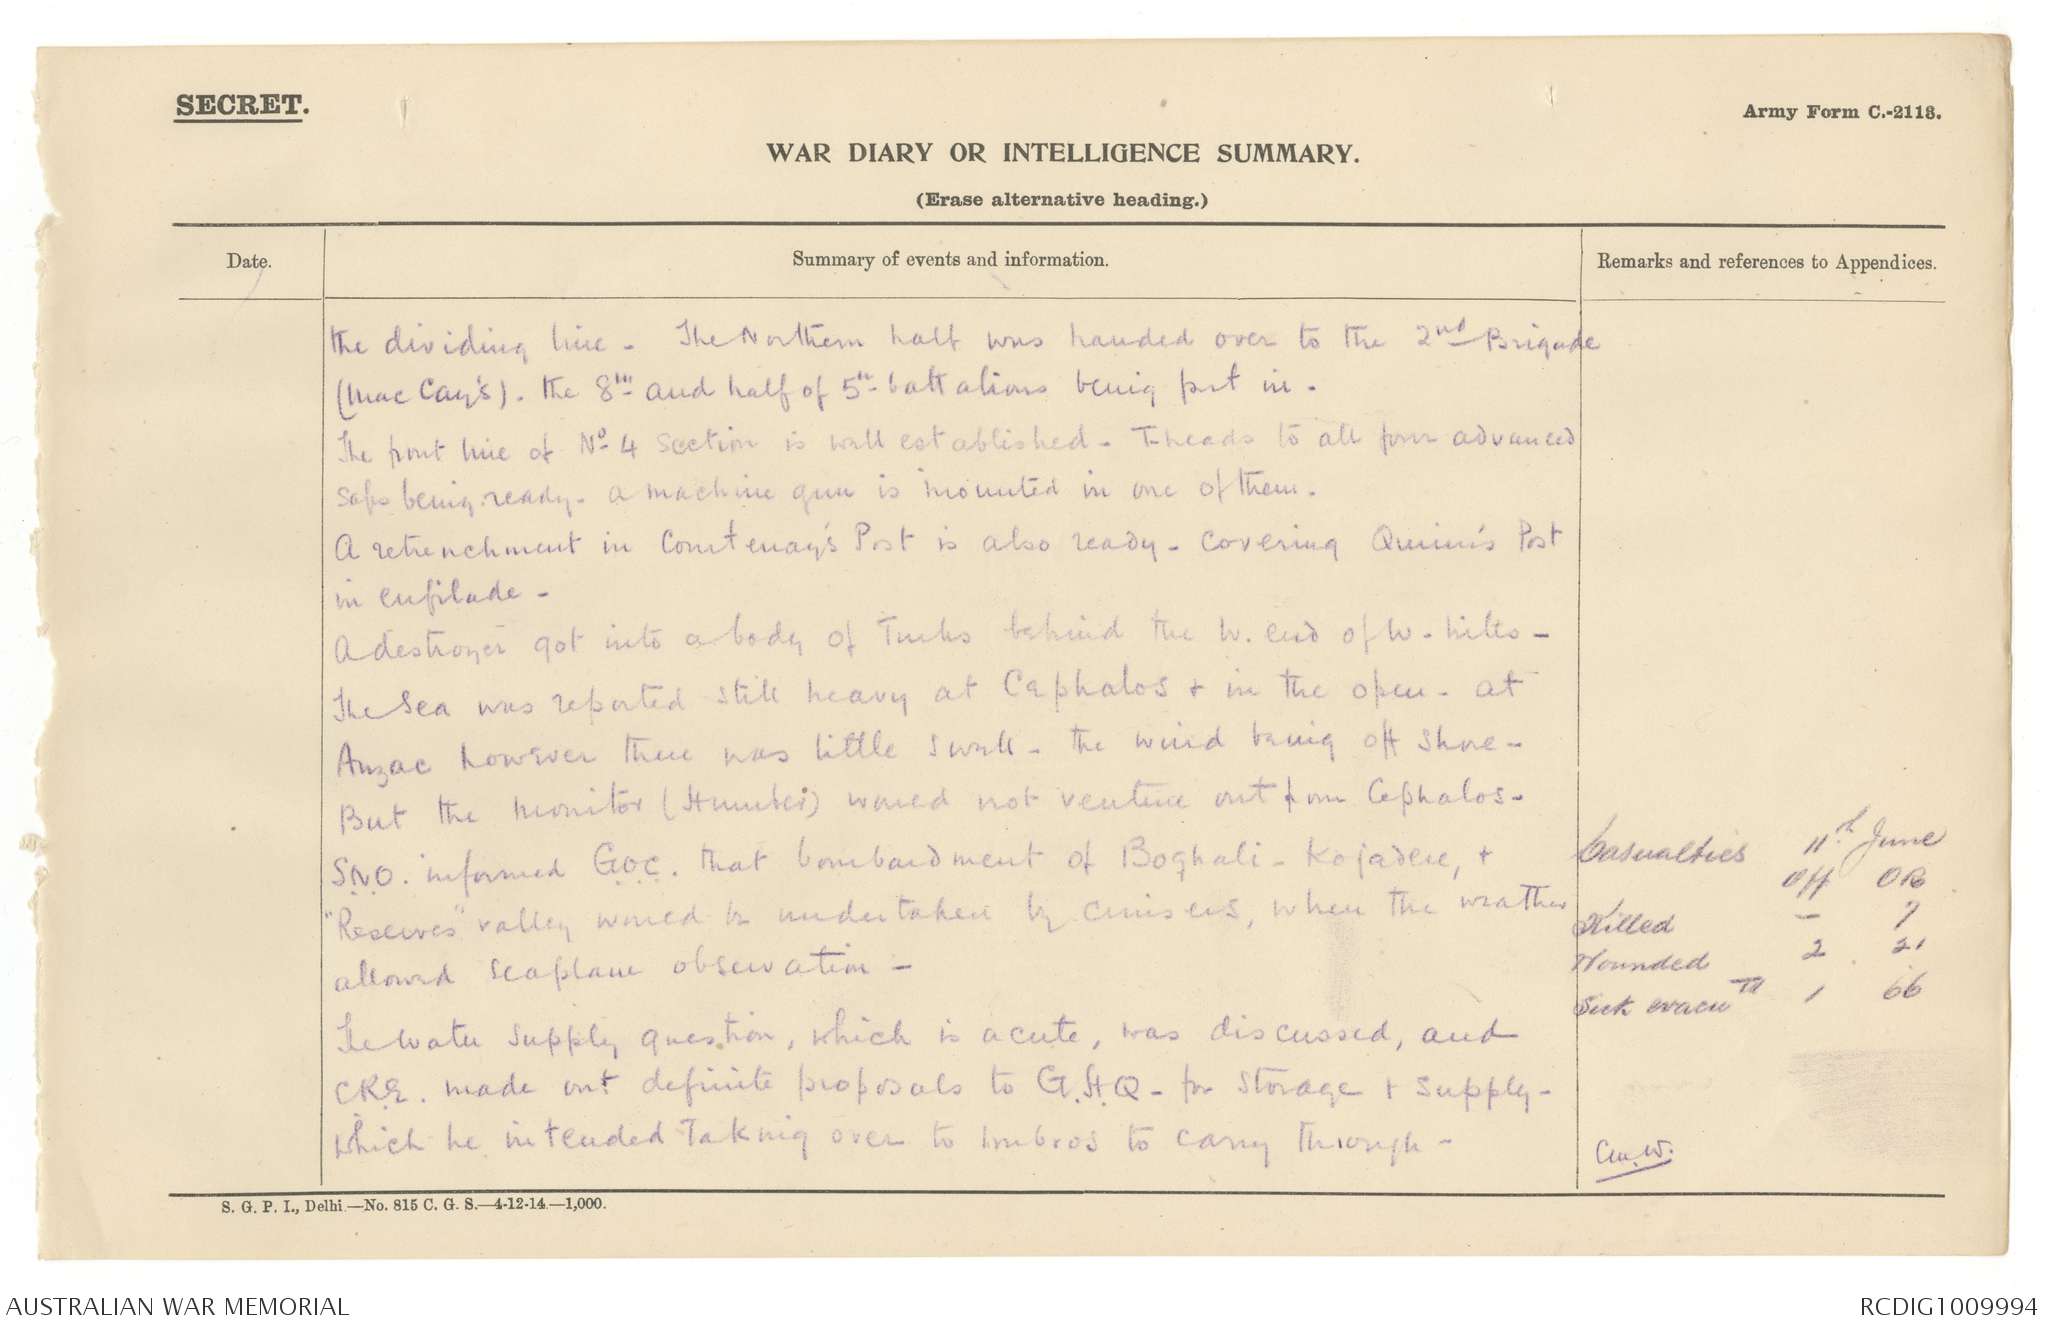 SECRET.
Army Form C.-2118.
WAR DIARY OR INTELLIGENCE SUMMARY.
(Erase alternative heading.)
Date.
Summary of events and information.
Remarks and references to Appendices.
the dividing line - The Northern half was handed over to the 2nd Brigade
(Mac Cay's). the 8th and half of 5th battalions being put in.
The front line of No 4 Section is well established - T-heads to all four advanced
saps being ready - a machine gun is mounted in one of them.
A retrenchment in Courtenay's Post is also ready - covering Quinn's Post
in enfilade -
A destroyer got into a body of Turks behind the W. end of W. hills -
The Sea was reported still heavy at Cephalos + in the open - at
Anzac however there was little swell - the wind being off shore -
But the monitor (Humber) would not venture out from Cephalos -
S.N.O. informed G.O.C. that bombardment of Boghali - Kojadere, +
"Reserves" valley would be undertaken by cruisers, when the weather
allowed seaplane observation -
The Water Supply question, which is acute, was discussed, and
CRE. made out definite proposals to G.H.Q - for Storage + supply -
which he intended taking over to Imbros to carry through -
Casualties 11th June
Off OR
Killed - 7
Wounded 2 21
Sick evacu td 1 66
S. G. P. I., Delhi.—No. 815 C. G. S.—4-12-14.—1,000.
AUSTRALIAN WAR MEMORIAL
RCDIG1009994